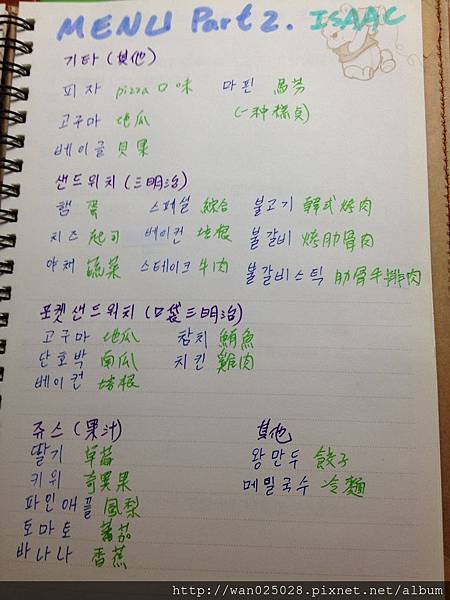 MENU Part 2. ISAAC
기타 (其他)
피자 pizza口味 마핀 馬芬
고구마 地瓜 (一种樣貞)
베이글 貝果
샌드위치 (三明治)
햄 蛋 스페셜 綜合 불고기 韓式烤肉
치즈 起司 베이컨 培根 불갈비 烤肋骨肉
야채 蔬菜 스테이크 牛肉 불갈비스틱 肋骨牛排肉
포켓샌드위치 (口袋三明治)
고구마 地瓜 참치 鮪魚
단호박 南瓜 치킨 雞肉
베이컨 培根
쥬스 (果汁) 其他
딸기 草莓 왕만두 餃子
키위 奇異果 메밀국수 冷麵
파인애플 鳳梨
토마토 蕃茄
바나나 香蕉
http://wan025028.pixnet.net/album